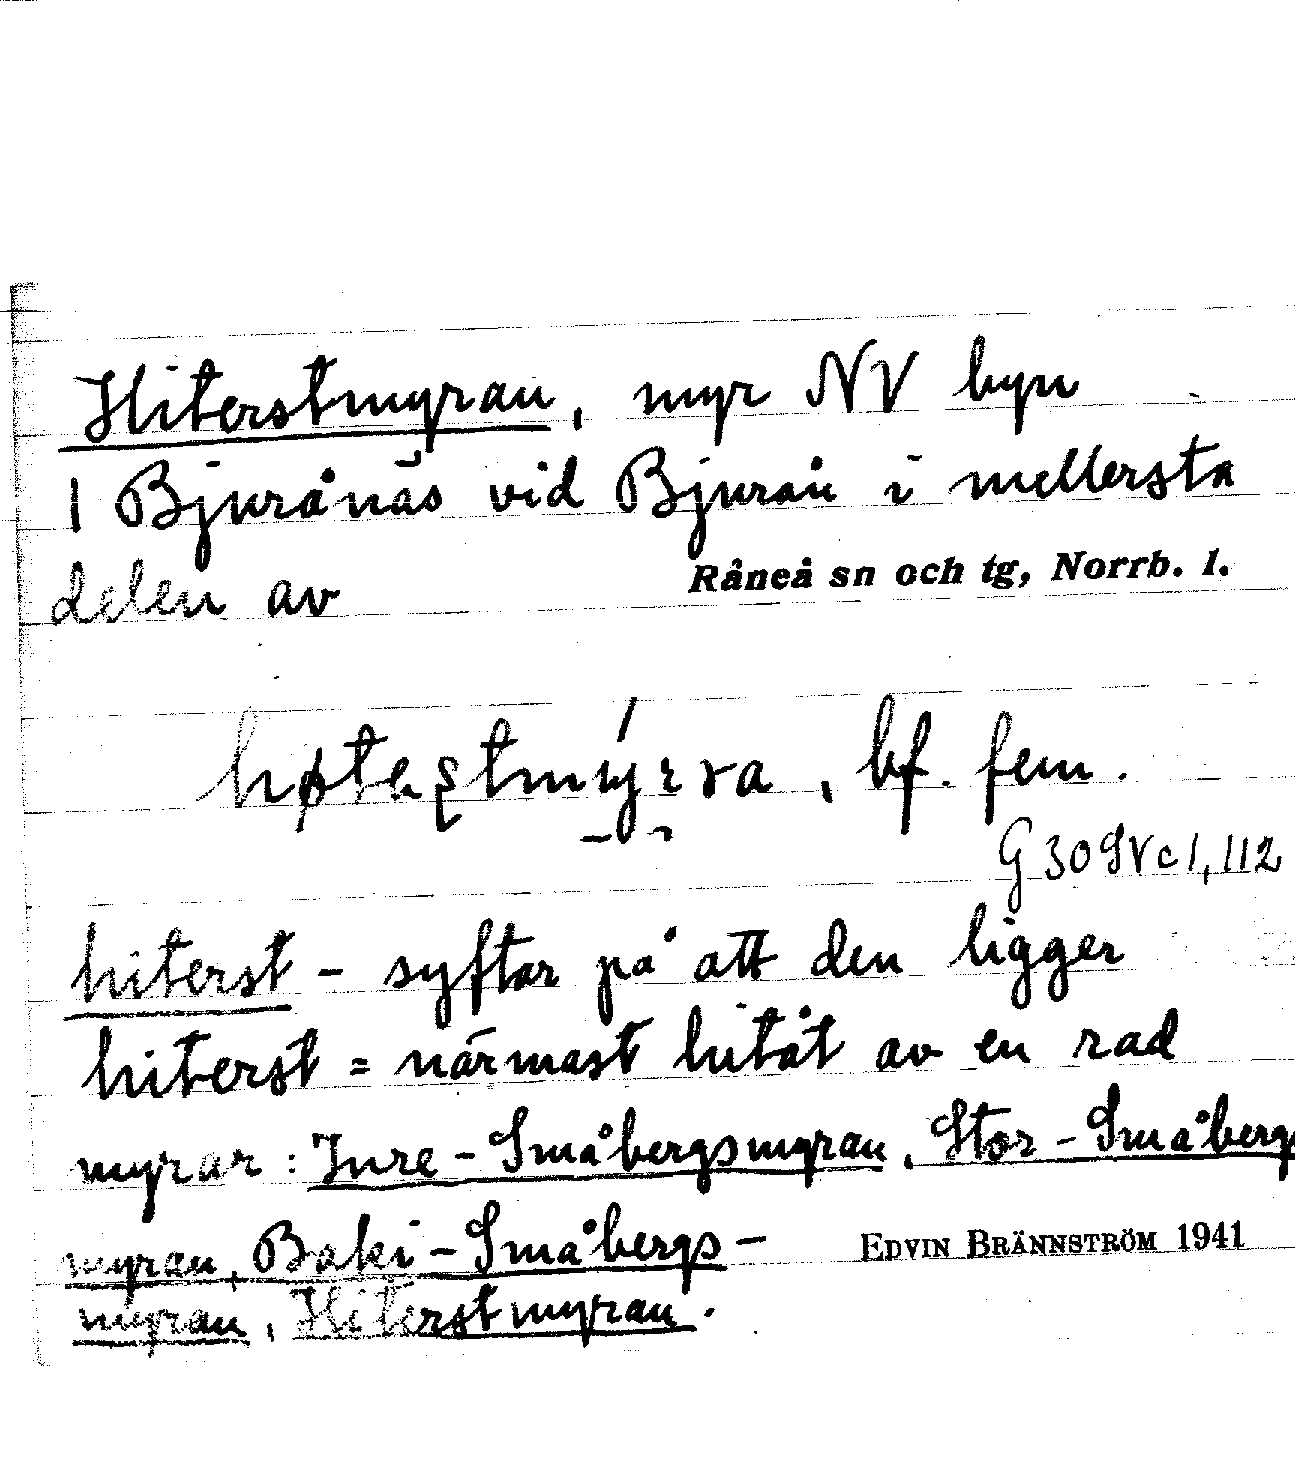 Hiterstmyran, myr NV byn
1 Bjurånäs vid Bjurån i mellersta
delen av Råneå sn och tg, Norrb. l.
bf. fem.
G 30 SV c 1, 112
hiterst - syftar på att den ligger
hiterst = närmast hitåt av en rad
myrar : Inre - Småbergsmyran, Stor - Småbergs
myran, Baki - Småbergs - EDVIN BRÄNNSTRÖM 1941
myran, Hiterstmyran.